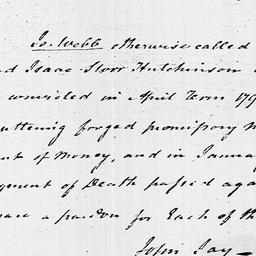 Jo. Webb otherwise called
Isaac Storr Hutchinson
convicted in April Term 179
uttering forged promissory
of Money, and in Janua
of Death passed aga
a pardon for Each of th
John Jay